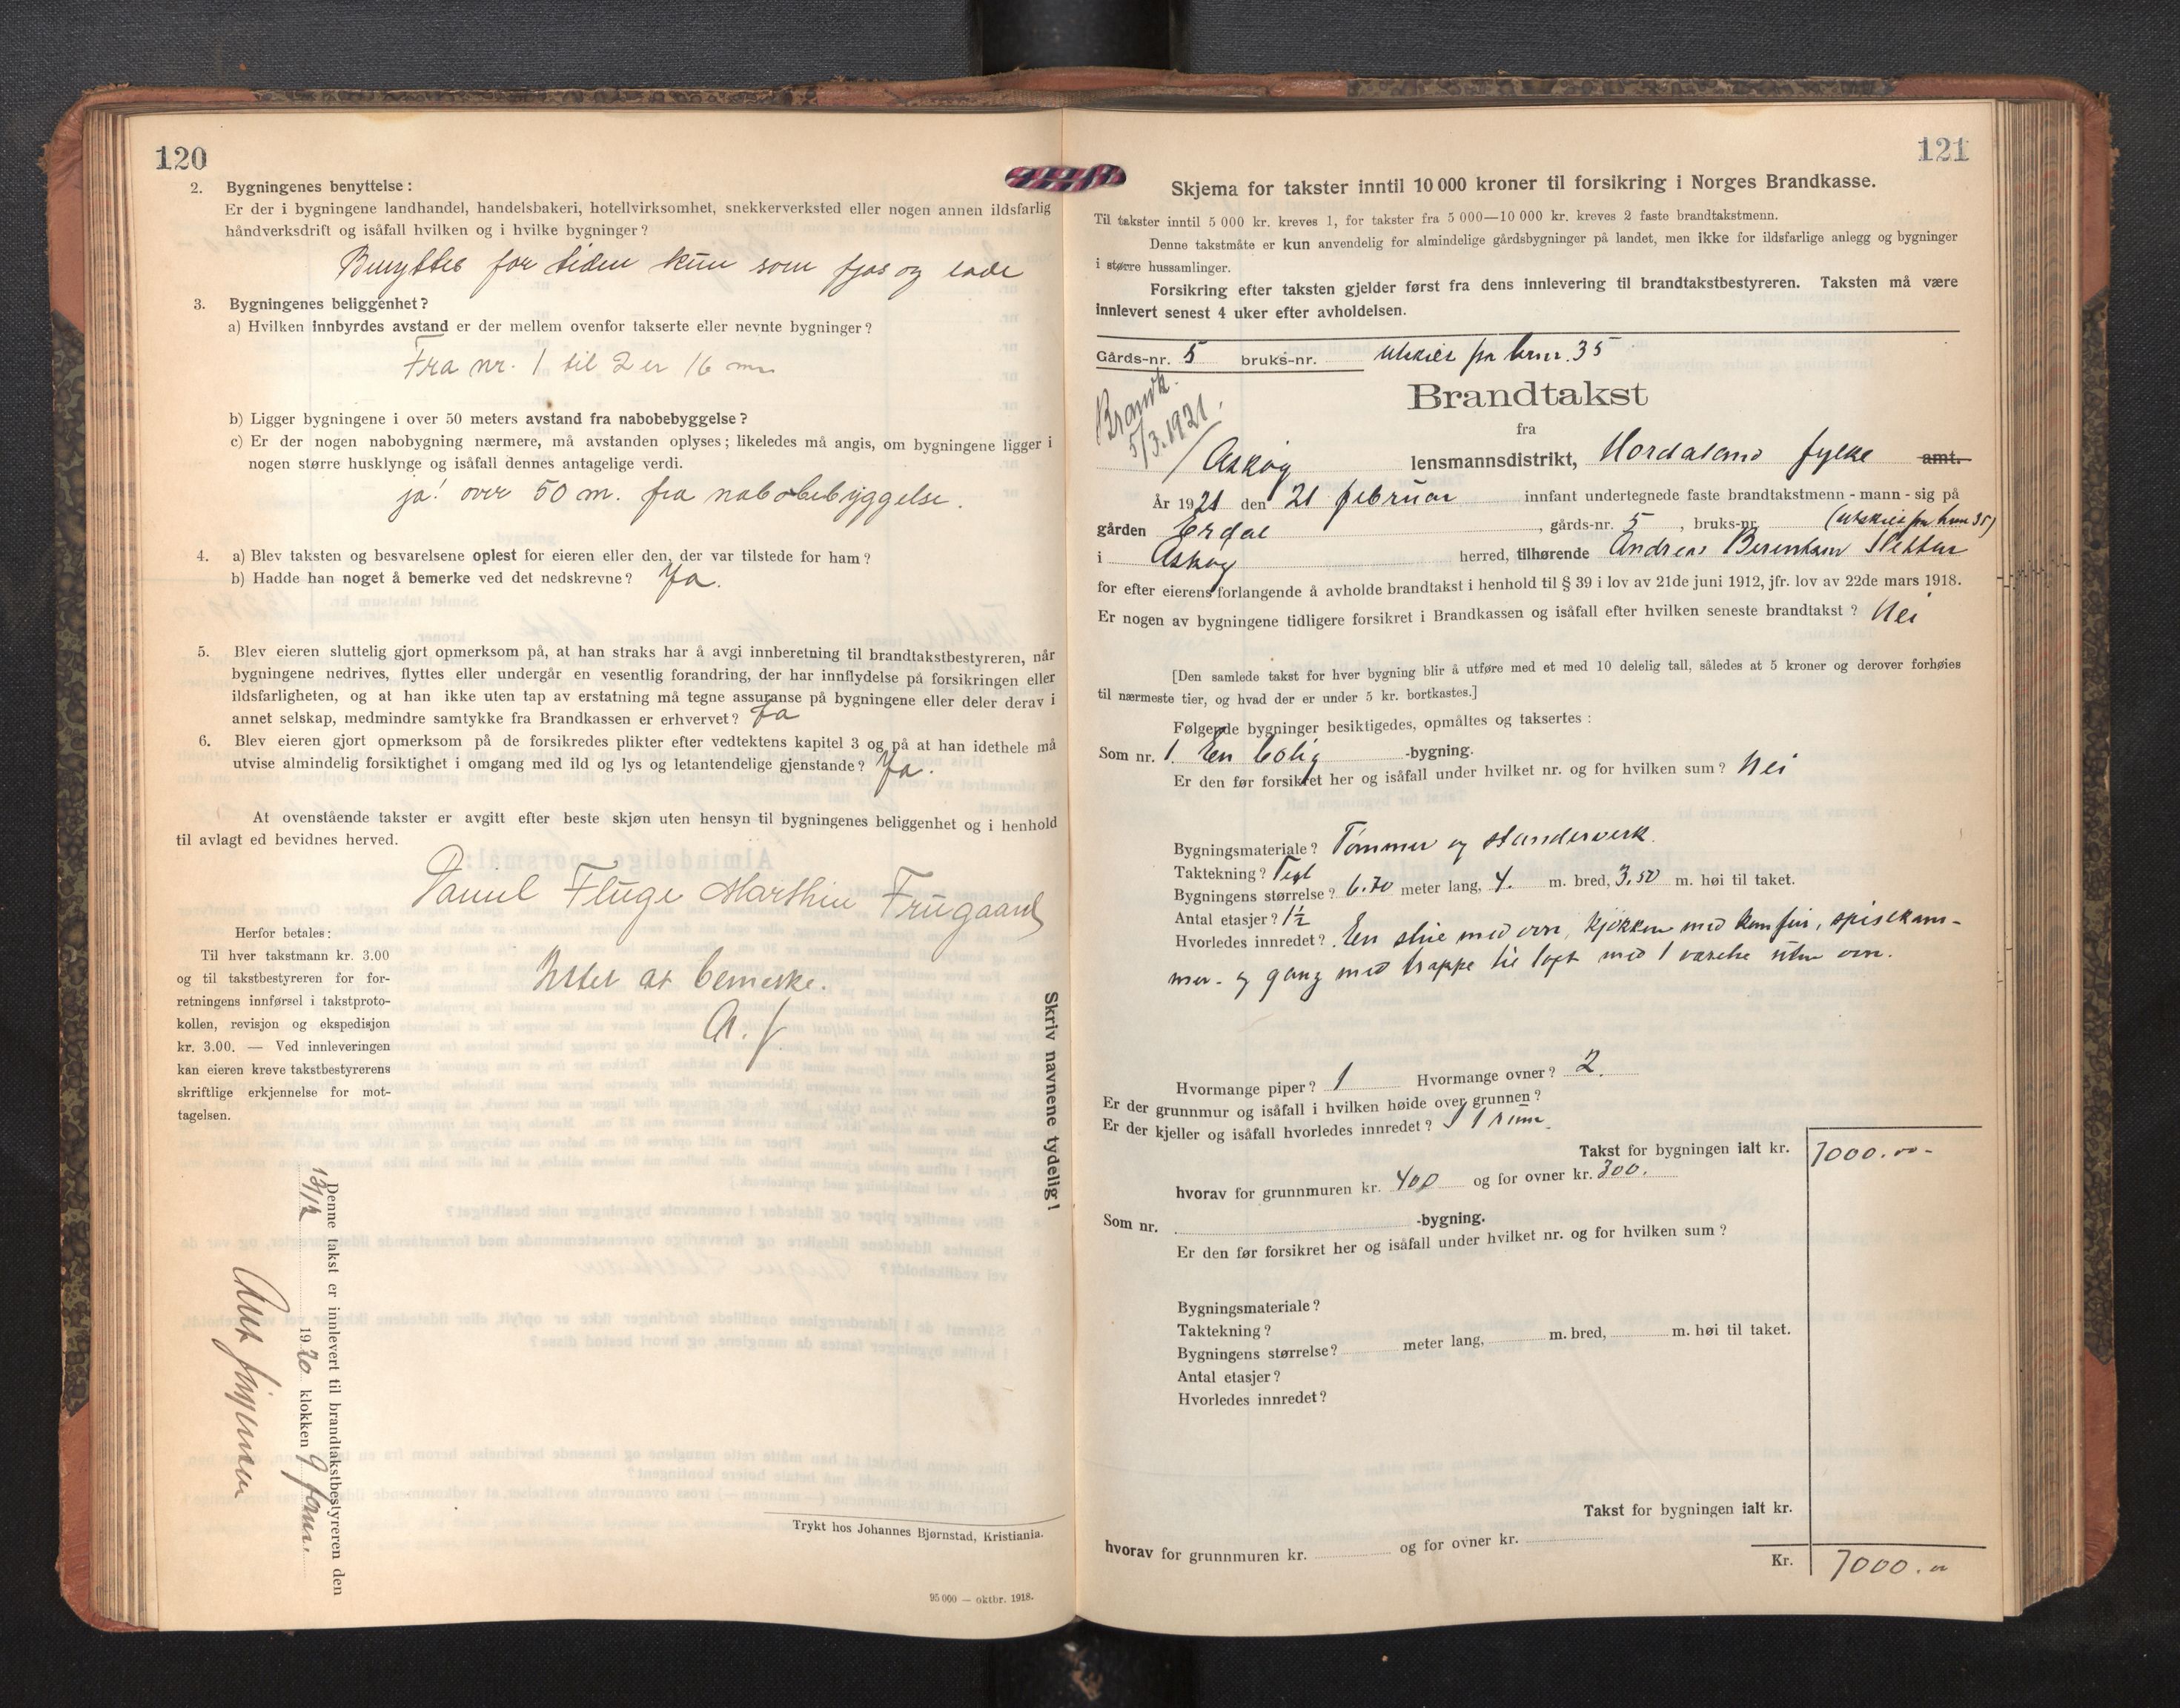 120
2. Bygningenes benyttelse:
Er der i bygningene landhandel, handelsbakeri, hotellvirksomhet, snekkerverksted eller nogen annen ildsfarlig
håndverksdrift og isåfall hvilken og i hvilke bygninger?
Benyttes for tiden kun som fjøs og lade
3. Bygningenes beliggenhet?
a) Hvilken innbyrdes avstand er der mellem ovenfor takserte eller nevnte bygninger?
Fra nr. 1 til 2 er 16 m
b) Ligger bygningene i over 50 meters avstand fra nabobebyggelse?
c) Er der nogen nabobygning nærmere, må avstanden oplyses; likeledes må angis, om bygningene ligger i
nogen større husklynge og isåfall dennes antagelige verdi.
ja! over 50 m. fra nabobebyggelse.
4. a) Blev taksten og besvarelsene oplest for eieren eller den, der var tilstede for ham?
b) Hadde han noget å bemerke ved det nedskrevne? Ja.
5. Blev eieren sluttelig gjort opmerksom på, at han straks har å avgi innberetning til brandtakstbestyreren, når
bygningene nedrives, flyttes eller undergår en vesentlig forandring, der har innflydelse på forsikringen eller
ildsfarligheten, og at han ikke uten tap av erstatning må tegne assuranse på bygningene eller deler derav i
annet selskap, medmindre samtykke fra Brandkassen er erhvervet? Ja
6. Blev eieren gjort opmerksom på de forsikredes plikter efter vedtektens kapitel 3 og på at han idethele må
utvise almindelig forsiktighet i omgang med ild og lys og letantendelige gjenstande? Ja.
At ovenstående takster er avgitt efter beste skjøn uten hensyn til bygningenes beliggenhet og i henhold
til avlagt ed bevidnes herved.
Daniel Fluge Marthin Frugaard
Herfor betales:
Til hver takstmann kr. 3.00
og til takstbestyreren for for-
retningens innførsel i takstproto-
kollen, revisjon og ekspedisjon
kr. 3.00. — Ved innleveringen
kan eieren kreve takstbestyrerens
skriftlige erkjennelse for mot-
tagelsen.
Intet at bemerke.
A. J
Skriv navnene tydelig!
Denne takst er innlevert til brandtakstbestyreren den
13/12 1920 klokken 9 form.
Trykt hos Johannes Bjørnstad, Kristiania.
95 000 — oktbr. 1918.
121
Skjema for takster inntil 10 000 kroner til forsikring i Norges Brandkasse.
Til takster inntil 5 000 kr. kreves 1, for takster fra 5 000—10 000 kr. kreves 2 faste brandtakstmenn.
Denne takstmåte er kun anvendelig for almindelige gårdsbygninger på landet, men ikke for ildsfarlige anlegg og bygninger
i større hussamlinger.
Forsikring efter taksten gjelder først fra dens innlevering til brandtakstbestyreren. Taksten må være
innlevert senest 4 uker efter avholdelsen.
Gårds-nr. 5 bruks-nr. utskilt fra brnr. 35
Brandk.
5/3.1921.
Brandtakst
fra
Askøy lensmannsdistrikt, Hordaland fylke amt.
År 1921 den 21 februar innfant undertegnede faste brandtakstmenn - mann - sig på
gården Erdal, gårds-nr. 5, bruks-nr. (utskilt fra brnr 35)
i Askøy herred, tilhørende Andreas
for efter eierens forlangende å avholde brandtakst i henhold til § 39 i lov av 21de juni 1912, jfr. lov av 22de mars 1918.
Er nogen av bygningene tidligere forsikret i Brandkassen og isåfall efter hvilken seneste brandtakst? Nei
[Den samlede takst for hver bygning blir å utføre med et med 10 delelig tall, således at 5 kroner og derover forhøies
til nærmeste tier, og hvad der er under 5 kr. bortkastes.]
Følgende bygninger besiktigedes, opmåltes og taksertes:
Som nr. 1 En bolig -bygning.
Er den før forsikret her og isåfall under hvilket nr. og for hvilken sum? Nei
Bygningsmateriale? Tømmer og standerverk.
Taktekning? Tegl
Bygningens størrelse? 6.70 meter lang, 4. m. bred, 3,50 m. høi til taket.
Antal etasjer? 1½
Hvorledes innredet? En stue med ovn, kjøkken med komfur, spisekam-
mer. og gang med trappe til loft med 1 værelse uten ovn.
Hvormange piper? 1 Hvormange ovner? 2.
Er der grunnmur og isåfall i hvilken høide over grunnen?
Er der kjeller og isåfall hvorledes innredet? I 1 rum.
Takst for bygningen ialt kr. 7000.00-
hvorav for grunnmuren kr. 400 og for ovner kr. 300.
Som nr. -bygning.
Er den før forsikret her og isåfall under hvilket nr. og for hvilken sum?
Bygningsmateriale?
Taktekning?
Bygningens størrelse? meter lang, m. bred, m. høi til taket.
Antal etasjer?
Hvorledes innredet?
Takst for bygningen ialt kr.
hvorav for grunnmuren kr. og for ovner kr.
Kr. 7000.00